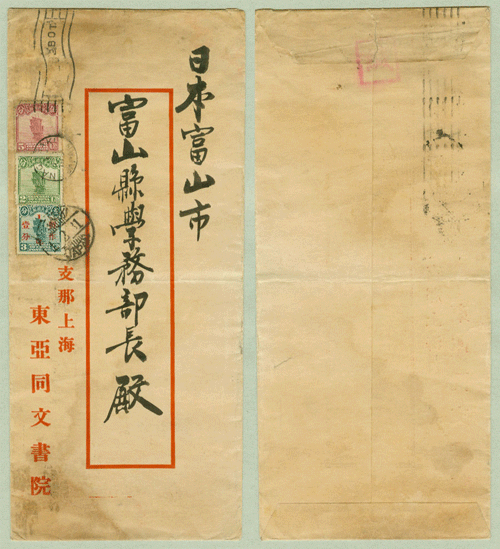 日本富山市
富山縣學務部長殿
支那上海
東亞同文書院
5
2
3